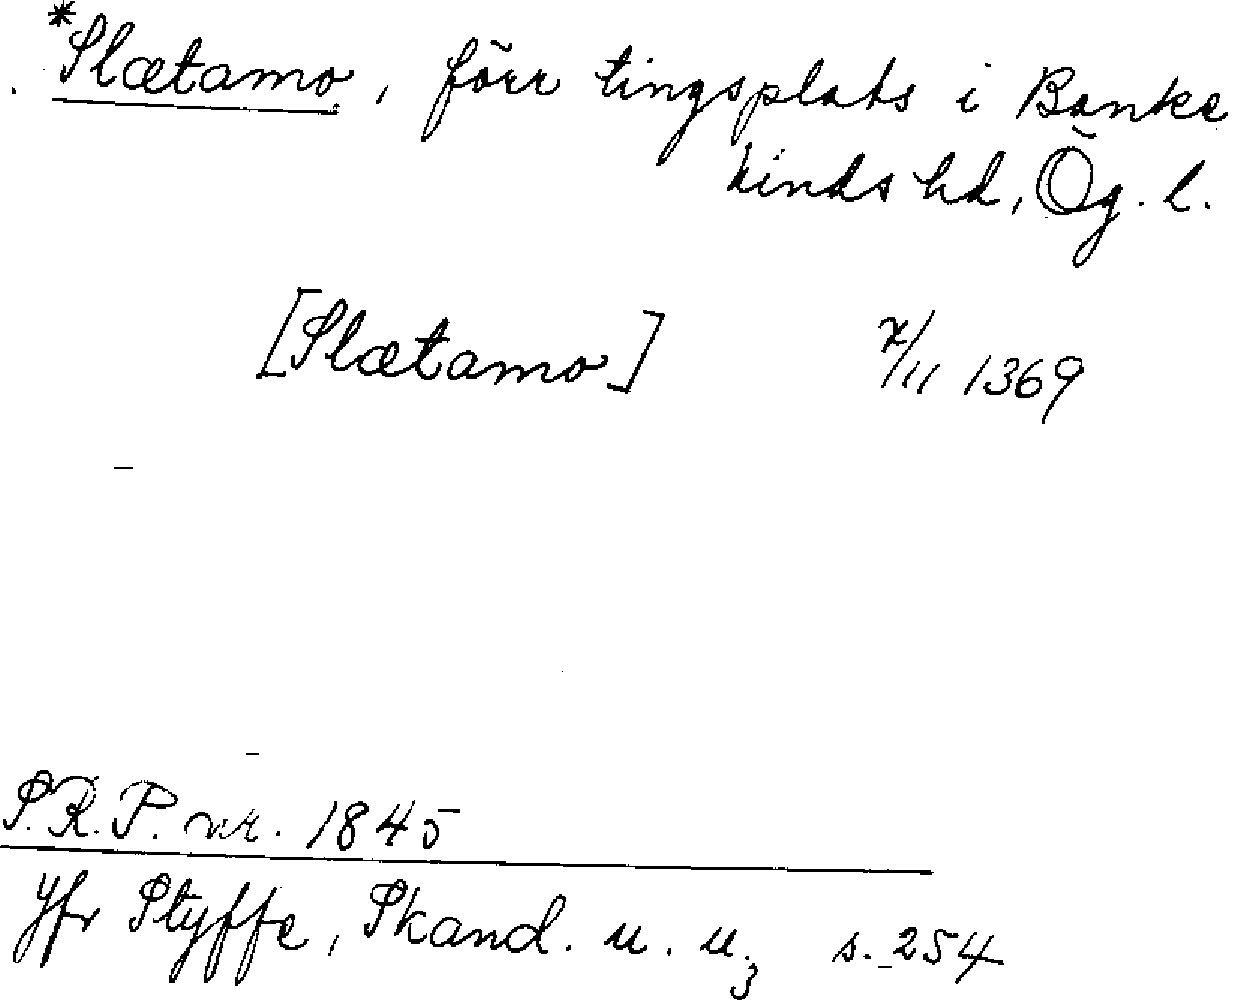 *Slætamo, förr tingsplats i Banke
kinds hd, Ög. l.
[Slætamo] 7/11 1369
S.R.P. nr. 1845
Jfr Styffe, Skand. u. u.3 s. 254